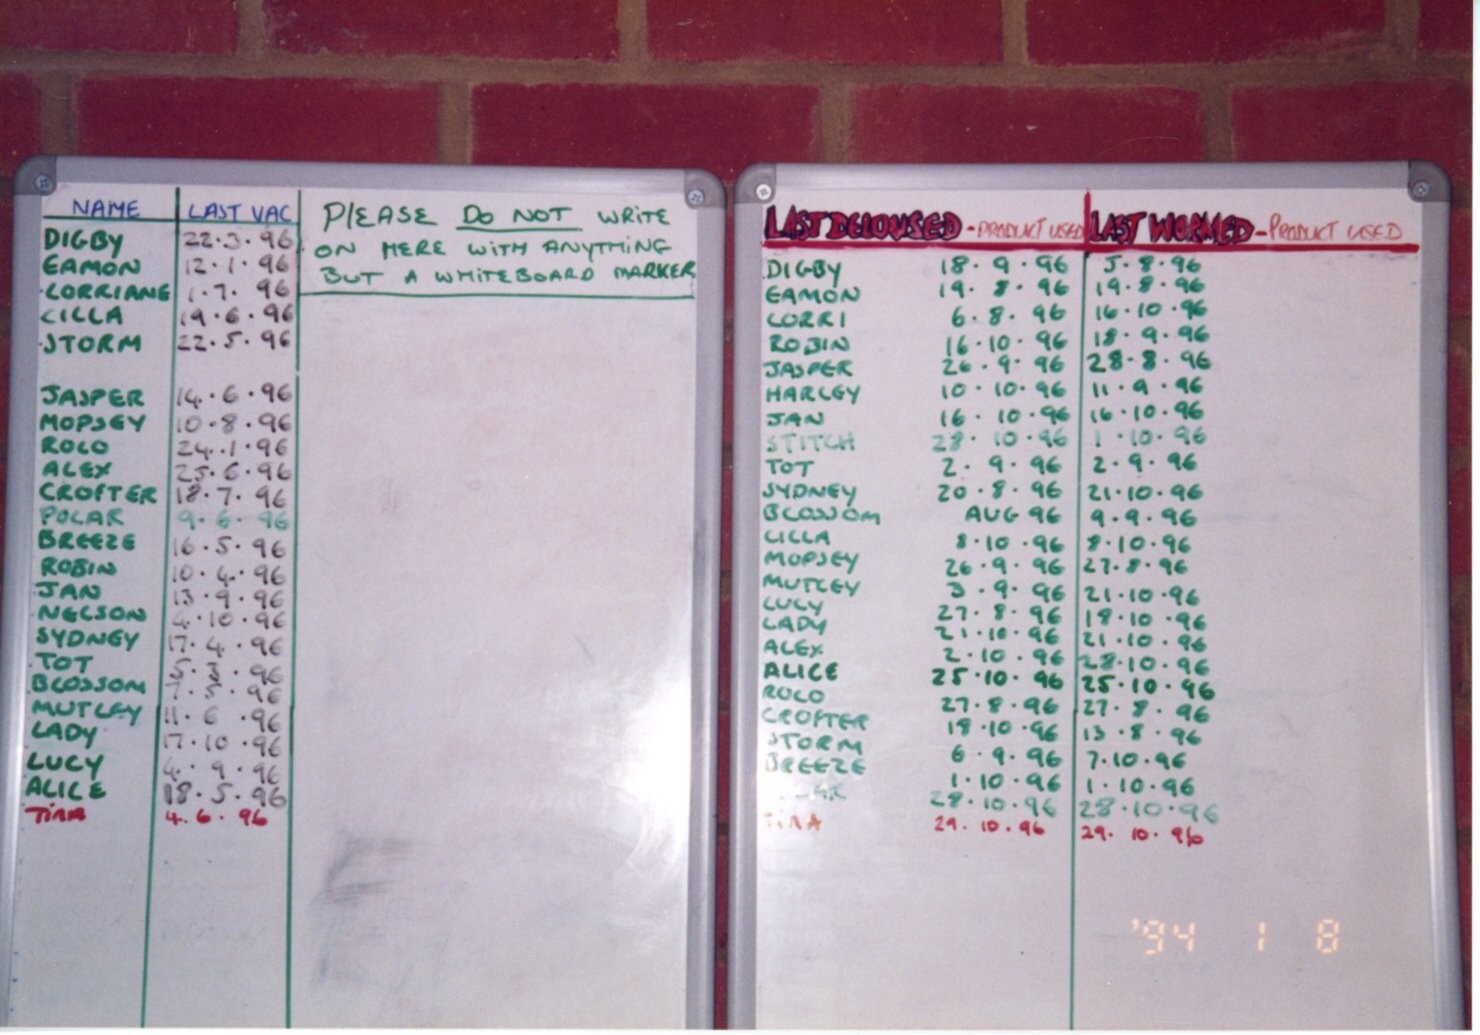 NAME LAST VAC
PLEASE DO NOT WRITE
ON HERE WITH ANYTHING
BUT A WHITEBOARD MARKER
DIGBY 22.3.96
EAMON 12.1.96
LORRIANE 1.7.96
CILLA 19.6.96
STORM 22.5.96
JASPER 14.6.96
MOPSEY 10.8.96
ROLO 24.1.96
ALEX 25.6.96
CROFTER 18.7.96
POLAR 9.6.96
BREEZE 16.5.96
ROBIN 10.4.96
JAN 13.9.96
NELSON 4.10.96
SYDNEY 17.4.96
TOT 5.3.96
BLOSSOM 7.5.96
MUTLEY 11.6.96
LADY 17.10.96
LUCY 4.9.96
ALICE 18.5.96
TINA 4.6.96
LAST DELOUSED - PRODUCT USED LAST WORMED - PRODUCT USED
DIGBY 18.9.96 5.8.96
EAMON 19.8.96 19.8.96
LORRI 6.8.96 16.10.96
ROBIN 16.10.96 18.9.96
JASPER 26.9.96 28.8.96
HARLEY 10.10.96 11.9.96
JAN 16.10.96 16.10.96
STITCH 28.10.96 1.10.96
TOT 2.9.96 2.9.96
SYDNEY 20.8.96 21.10.96
BLOSSOM AUG 96 9.9.96
CILLA 8.10.96 8.10.96
MOPSEY 26.9.96 27.8.96
MUTLEY 3.9.96 21.10.96
LUCY 27.8.96 18.10.96
LADY 21.10.96 21.10.96
ALEX 2.10.96 28.10.96
ALICE 25.10.96 25.10.96
ROLO 27.8.96 27.8.96
CROFTER 18.10.96 13.8.96
STORM 6.9.96 7.10.96
BREEZE 1.10.96 1.10.96
28.10.96 28.10.96
TINA 29.10.96 29.10.96
'94 1 8